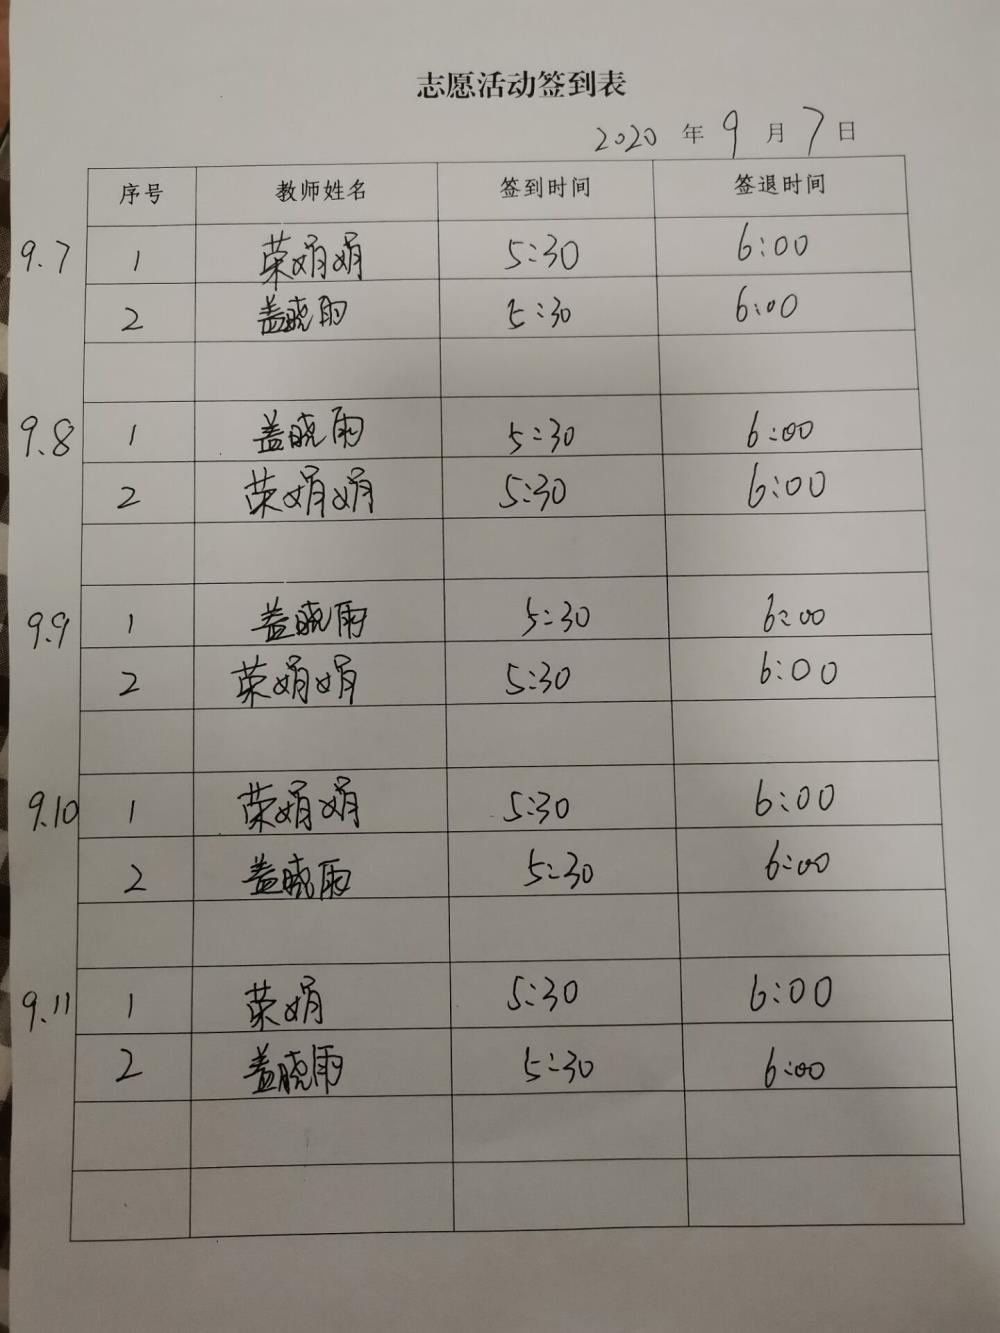 志愿活动签到表
2020 年 9 月 7 日
序号 教师姓名 签到时间 签退时间
9.7 1 荣娟娟 5:30 6:00
2 盖晓雨 5:30 6:00
9.8 1 盖晓雨 5:30 6:00
2 荣娟娟 5:30 6:00
9.9 1 盖晓雨 5:30 6:00
2 荣娟娟 5:30 6:00
9.10 1 荣娟娟 5:30 6:00
2 盖晓雨 5:30 6:00
9.11 1 荣娟 5:30 6:00
2 盖晓雨 5:30 6:00